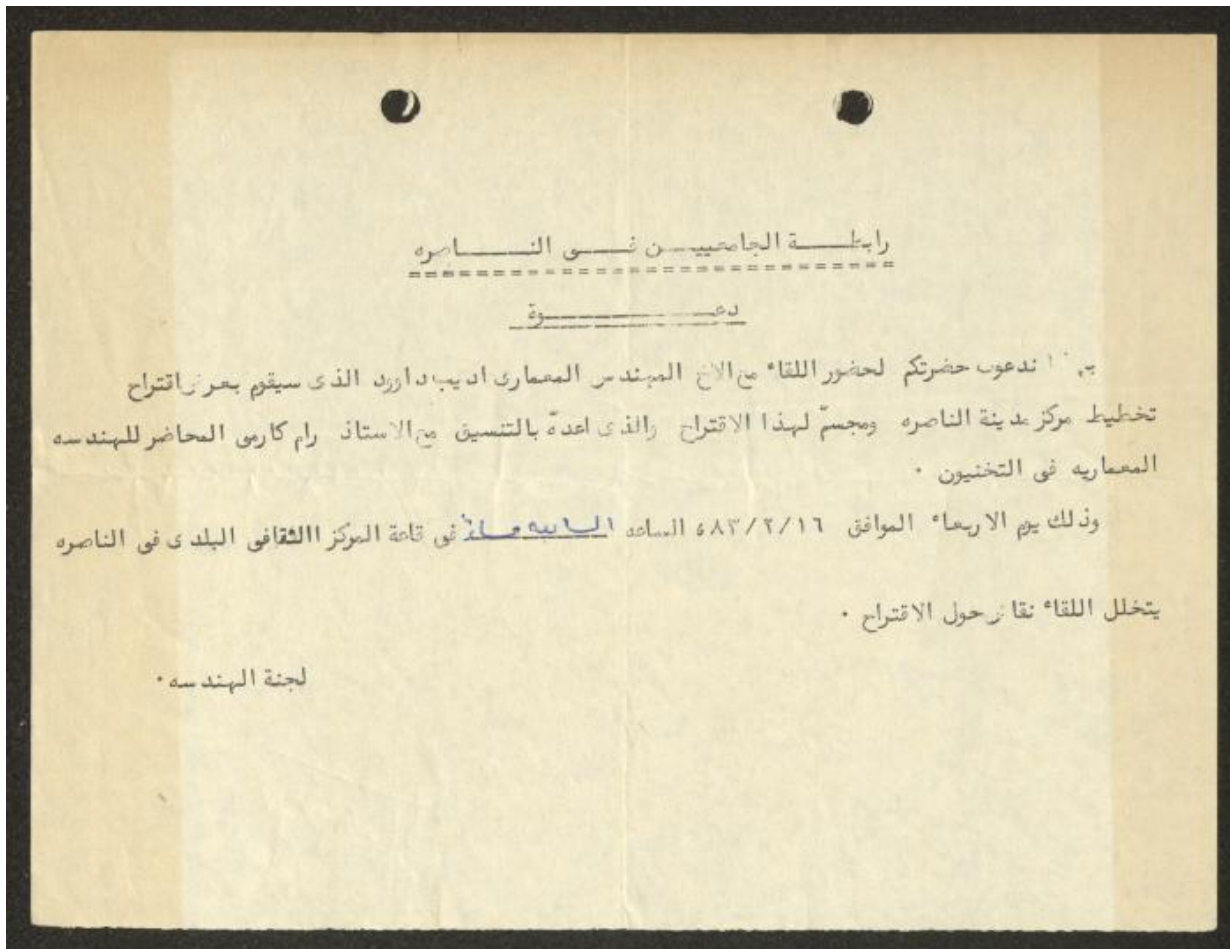 رابطة الجامعيين في الناصره
دعوة
ندعو حضرتكم لحضور اللقاء مع الاخ المهندس المعماري اديب داوود الذي سيقوم بعرض اقتراح
تخطيط مركز مدينة الناصره ومجسمّ لهذا الاقتراح والذي اعدهّ بالتنسيق مع الاستاذ رام كارمي المحاضر للهندسه
المعماريه في التخنيون ٠
وذلك يوم الاربعاء الموافق ٨٣/٢/١٦ الساعه السابعه مساءً في قاعة المركز االثقافي البلدي في الناصره
يتخلل اللقاء نقاش حول الاقتراح ٠
لجنة الهندسه ٠